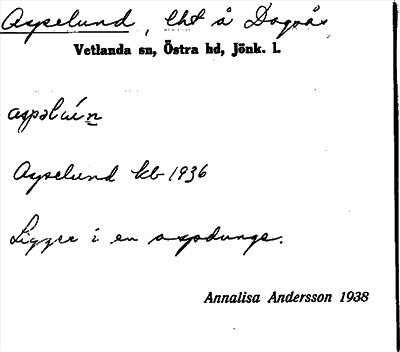 Aspelund, lht å Dagsås,
Vetlanda sn, Östra hd, Jönk. l.
Aspelund kb 1936
Ligger i en aspdunge.
Annalisa Andersson 1938